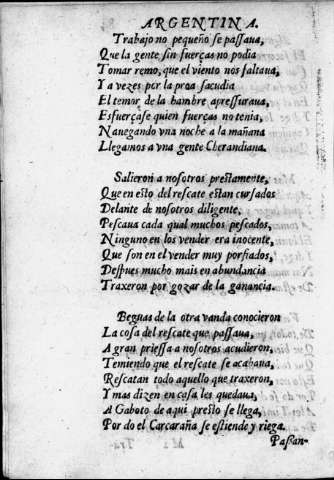 ARGENTINA.
Trabajo no pequeño se passaua,
Que la gente sin fuerças no podia
Tomar remo, que el viento nos faltaua,
Y a vezes por la proa sacudia
El temor de la hambre apressuraua,
Esfuerçase quien fuerças no tenia,
Nauegando vna noche a la mañana
Llegamos a vna gente Cherandiana.
Salieron a nosotros prestamente,
Que en esto del rescate estan cursados
Delante de nosotros diligente,
Pescaua cada qual muchos pescados,
Ninguno en los vender era inocente,
Que son en el vender muy porfiados,
Despues mucho mais en abundancia
Traxeron por gozar de la ganancia.
Beguas de la otra vanda conocieron
La cosa del rescate que passaua,
A gran priessa a nosotros acudieron,
Temiendo que el rescate se acabaua,
Rescatan todo aquello que traxeron,
Y mas dizen en casa les quedaua,
A Gaboto de aqui presto se llega,
Por do el Carcaraña se estiende y riega.
Passan-